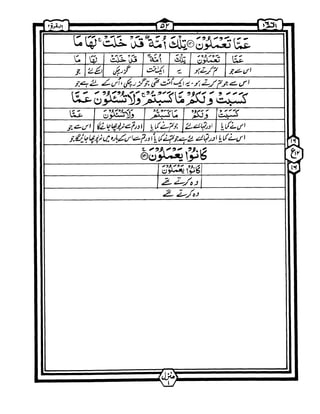 ٥٢
عَمَّا تَعْمَلُوْنَ ۝ تِلْكَ اُمَّةٌ قَدْ خَلَتْ ۚ لَهَا مَا
عَمَّا تَعْمَلُوْنَ تِلْكَ اُمَّةٌ قَدْ خَلَتْ لَهَا مَا
اس سے جو تم کرتے ہو یہ ایک امت گزر چکی اسکے لئے جو
اس سے جو تم کرتے ہو۔ یہ ایک امت تھی جو گزر چکی، اس کے لئے ہے جو
كَسَبَتْ وَلَكُمْ مَّا كَسَبْتُمْ ۚ وَلَا تُسْئَلُوْنَ عَمَّا
كَسَبَتْ وَلَكُمْ مَّا كَسَبْتُمْ وَلَا تُسْئَلُوْنَ عَمَّا
اس نے کمایا اور تمہارے لئے جو تم نے کمایا اور تم سے نہ پوچھا جائے گا اس سے جو
اس نے کمایا اور تمہارے لئے ہے جو تم نے کمایا اور تم سے اس کے بارہ میں نہ پوچھا جائیگا جو
كَانُوْا يَعْمَلُوْنَ ۝
كَانُوْا يَعْمَلُوْنَ
وہ کرتے تھے
وہ کرتے تھے
منزل ١